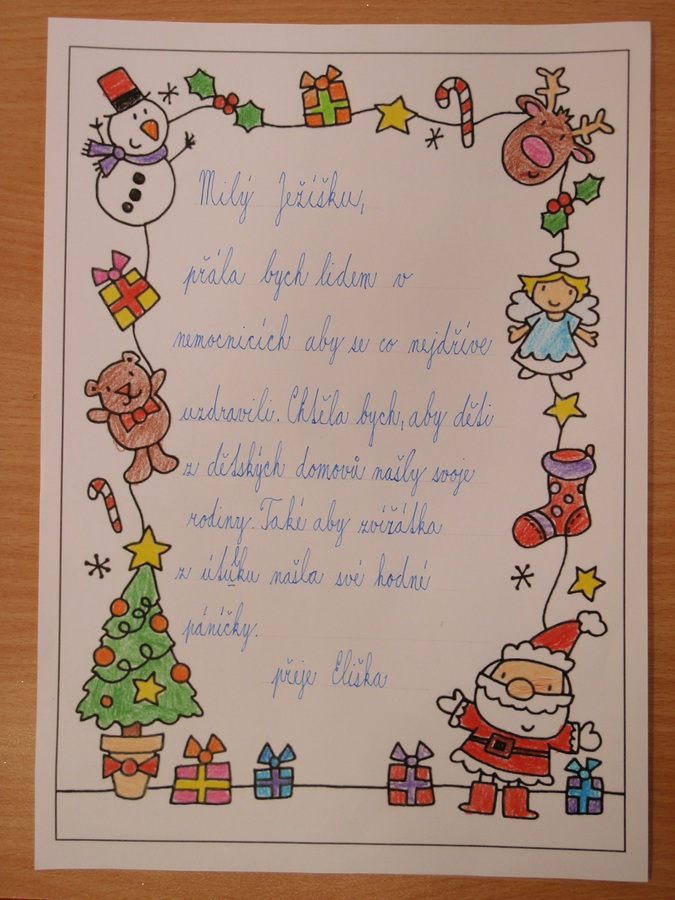 Milý Ježíšku,
přála bych lidem v
nemocnicích aby se co nejdříve
uzdravili. Chtěla bych, aby děti
z dětských domovů našly svoje
rodiny. Také aby zvířátka
z útulku našla své hodné
páníčky.
přeje Eliška